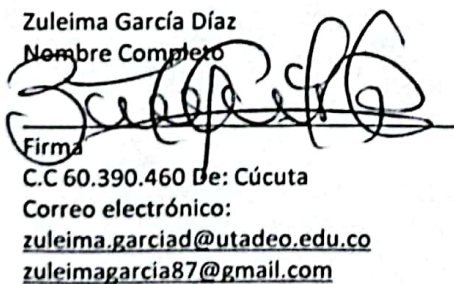 Zuleima García Díaz
Nombre Completo
Firma
C.C 60.390.460 De: Cúcuta
Correo electrónico:
zuleima.garciad@utadeo.edu.co
zuleimagarcia87@gmail.com